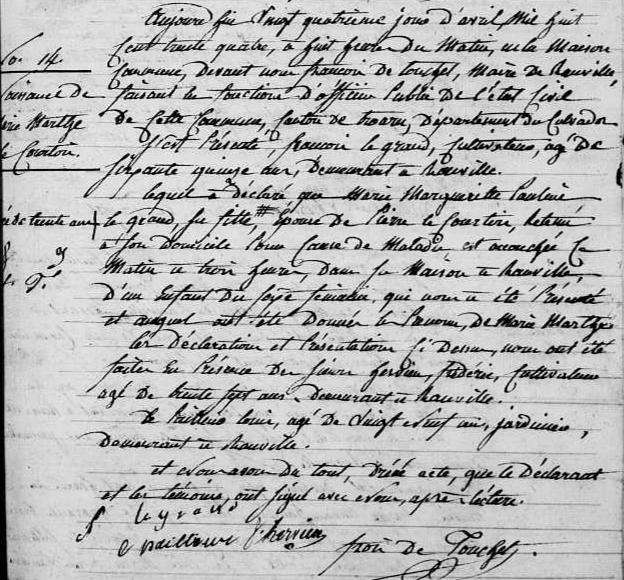 No. 14.
Naissance de
Marie Marthe
le Courtois.
agée de trente ans
Aujourd'hui Vingt quatrieme jour d'avril Mil huit
Cent trente quatre, à huit heures du Matin, en la Maison
Commune, Devant nous françois de touchet, Maire de hauville,
faisant les fonctions d'officier Public De l'état Civil
De Cette Commune, Canton de troarn, Département du Calvados
S'est Présenté, françois le grand, Cultivateur, agé De
soixante quinze ans, Demeurant à hauville.
lequel a Déclaré que Marie Marguerite Pauline
le grand, sa fille, Epouse De Pierre le Courtois, Retenu
à son Domicile Pour Cause de Maladie, est accouchée Ce
Matin a trois heures, Dans sa Maison a hauville,
D'un Enfant Du sexe féminin, qui nous a été Présenté
et auquel ont été Donnés les Prénoms, de Marie Marthe
les Déclaration et Présentation Ci Dessus, nous ont été
faites En Présence Des sieurs frederic, Cultivateur
agé De trente sept ans Demeurant a hauville.
Le louis, agé de Vingt neuf ans, jardinier,
Demeurant a hauville.
et avons Du tout, Dressé acte, que le Déclarant
et les témoins, ont signé avec nous, après lecture.
le grand
françois De Touchet.